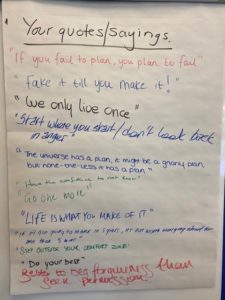 Your quotes/sayings.
"If you fail to plan, you plan to fail"
"Fake it till you make it!"
"We only live once"
"Start where you start / don't look back
in anger"
"The universe has a plan, it might be a gnarly plan
but none-the-less it has a plan"
"Have the confidence to not know"
"Go one more"
"LIFE IS WHAT YOU MAKE OF IT"
"If it's not going to matter in 5 years, it's not worth worrying about for
more than 5 mins"
"STEP OUTSIDE YOUR COMFORT ZONE"
"Do your best"
Better to beg forgiveness than
seek permission